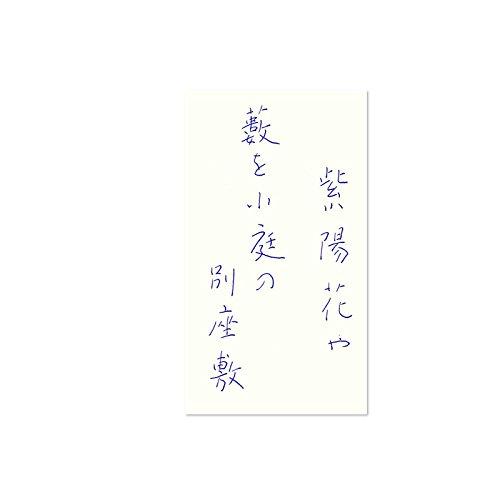 紫陽花や
藪を小庭の
別座敷